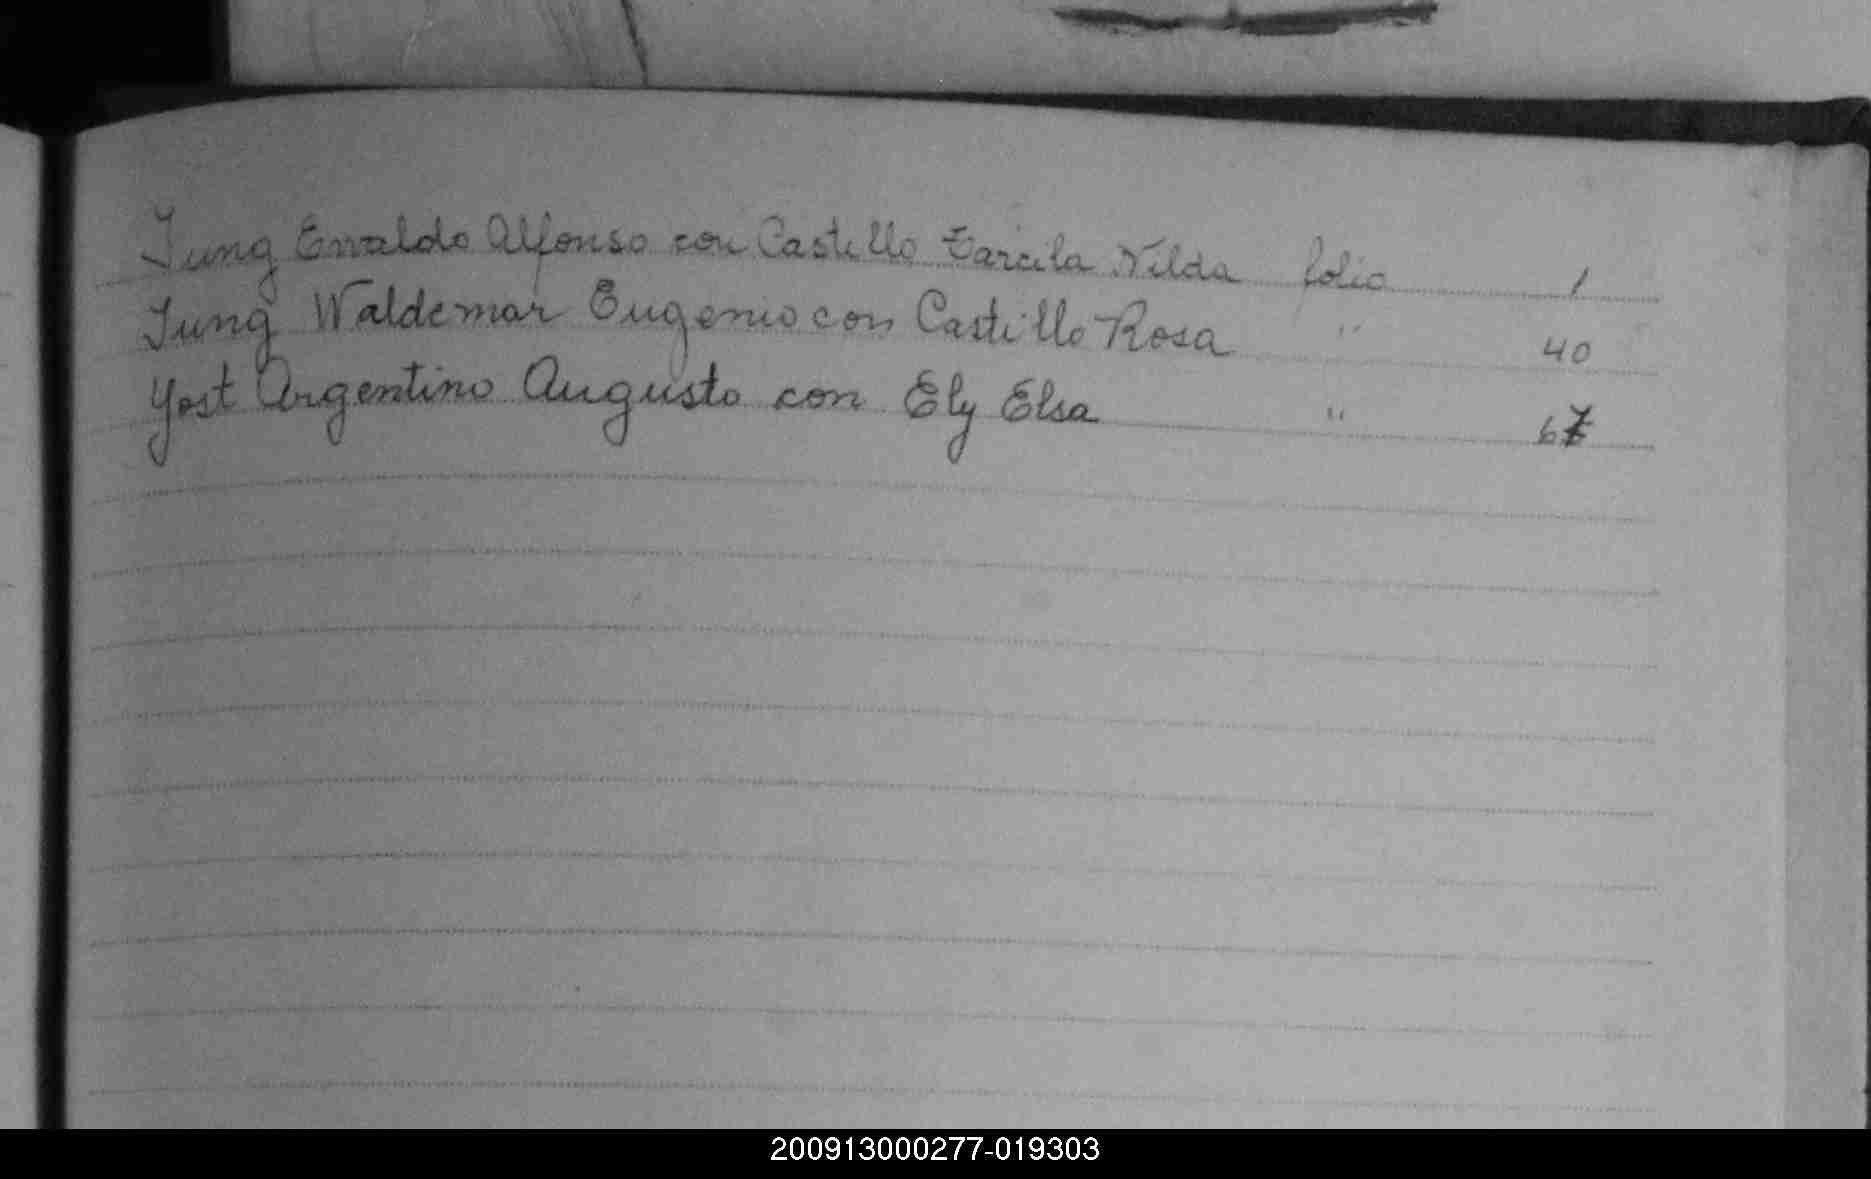 Jung Envaldo Alfonso con Castillo Tarcila Nilda folio 1
Jung Waldemar Eugenio con Castillo Rosa " 40
Yost Argentino Augusto con Ely Elsa " 67
200913000277-019303